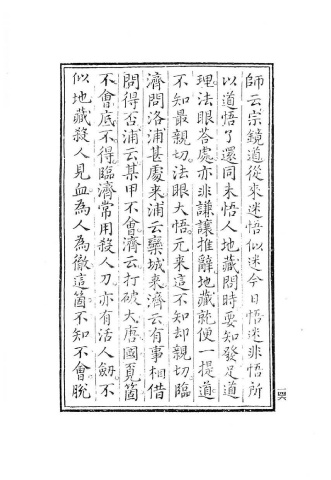 師云宗鏡道從來迷悟似迷今日悟迷非悟所
以道悟了還同未悟人地藏問時要知發足道
理法眼荅處亦非謙讓推辭地藏就便一提道
不知最親切法眼大悟元來這不知却親切臨
濟問洛浦甚處來浦云欒城來濟云有事相借
問得否浦云某甲不會濟云打破大唐國覓箇
不會底不得臨濟常用殺人刀亦有活人劒不
似地藏殺人見血為人為徹這箇不知不會脫